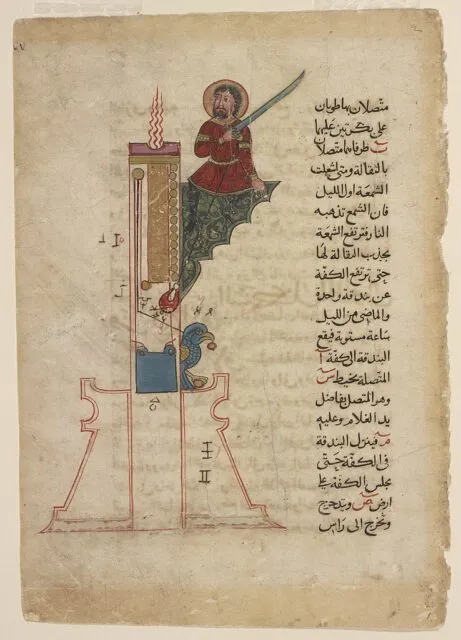 متصلان بها طويان
على بكرتين عليهما
طرفاهما متصلان
بالثقالة ومتى اشعلت
الشمعة اول الليل
فان الشمع تذهبه
النار فترتفع الشمعة
بجذب الثقالة لها
حتى ترتفع الكفة
عن بندقة واحدة
والماضى من الليل
ساعة مستوية فيقع
البندقة الى الكفة
المتصلة بخيط س
وهو المتصل بفاضل
يد الغلام وعليه
فينزل البندقة
فى الكفة حتى
يجلس الكفة على
ارض ص وتتدحرج
وتخرج الى راس